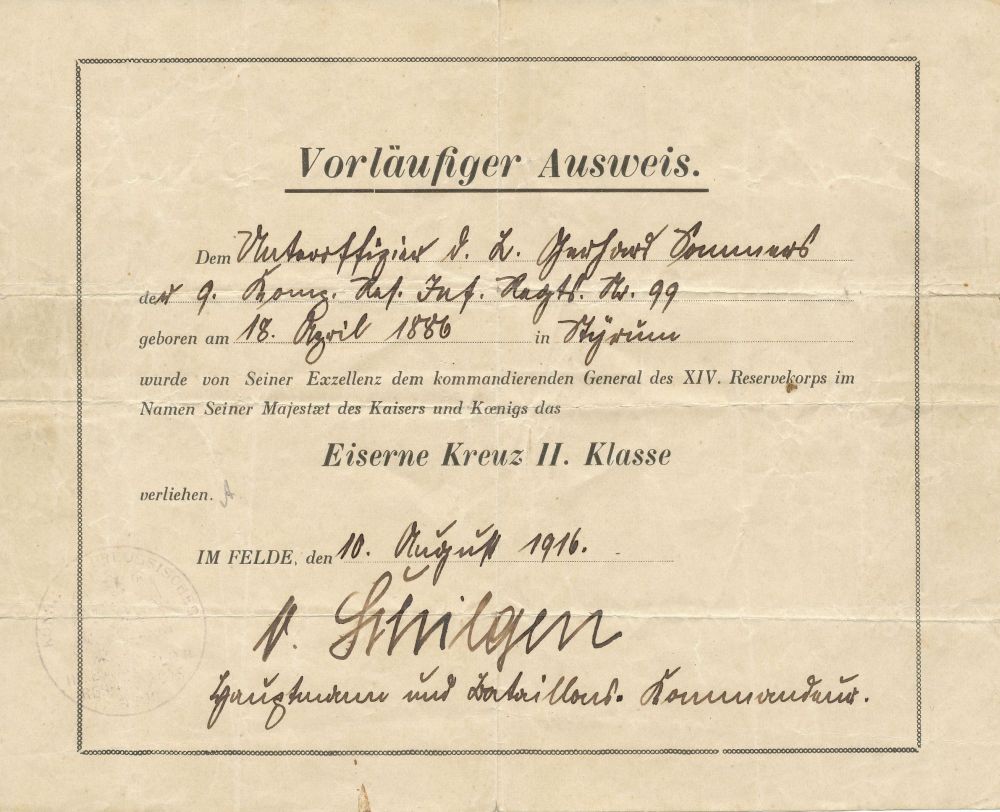 Vorläufiger Ausweis.
Dem Unteroffizier d. L. Gerhard Sommers
der 9. Komp. Res. Inf. Regts. Nr. 99
geboren am 18. April 1886 in Styrum
wurde von Seiner Exzellenz dem kommandierenden General des XIV. Reservekorps im
Namen Seiner Majestæt des Kaisers und Kœnigs das
Eiserne Kreuz II. Klasse
verliehen.
IM FELDE, den 10. August 1916.
v. Schilgen
Hauptmann und Bataillons-Kommandeur.